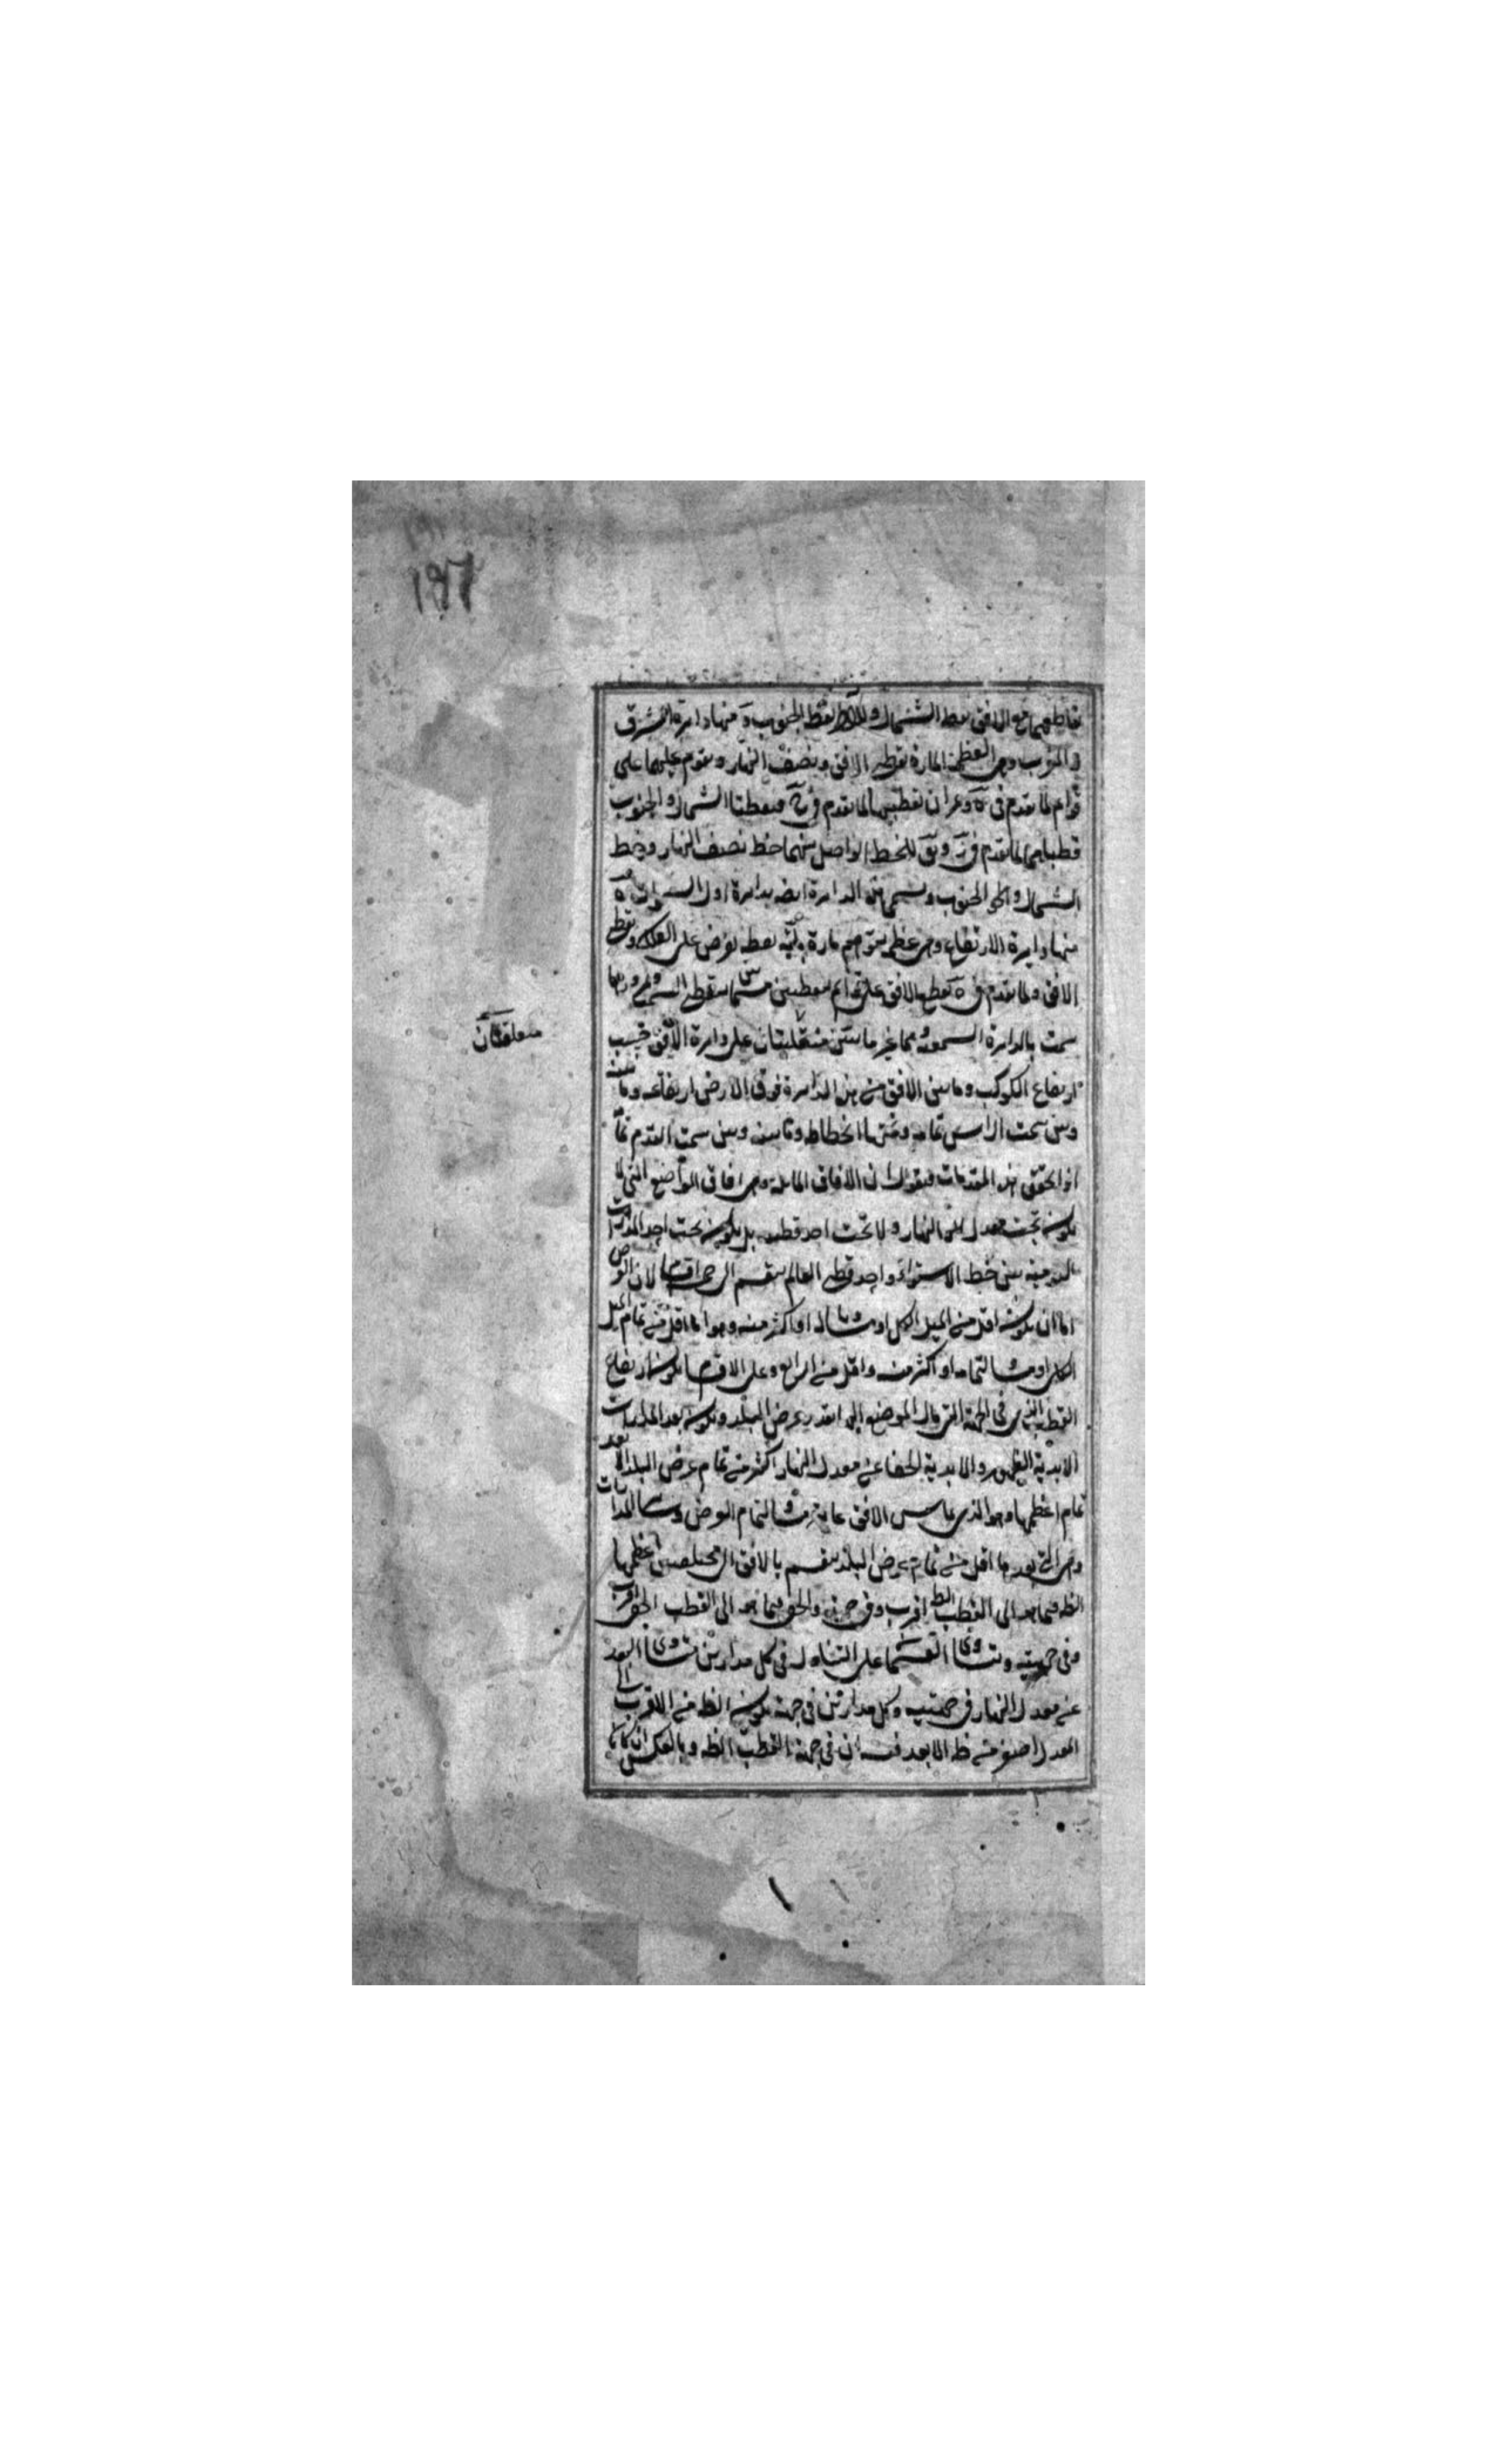 ١٩٦
تقاطعهما مع الافق نقطة الشمال والاخر نقطة الجنوب و منها دايرة المشرق
والمغرب وهى العظيمة المارة بقطبى الافق ونصف النهار ويقوم عليهما على
قوائم لما تقدم فى ة و لما تقدم فى فنقطتا الشمال والجنوب
قطباها لما تقدم فى للخط الواصل بينهما خط نصف النهار وخط
الشمال والجنوب ويسمى هذه الدايرة ايضا بدايرة اول السموات
منها دايرة الارتفاع وهى عظيمة تتوهم مارة باية نقطة تفرض على الفلك وبقطبى
الافق ولما تقدم فى ة تقطع الافق على قوائم بنقطتين
سمت بالدايرة السمتية وهما غير ثابتتين منتقلتان على دايرة الافق بحسب
متعلقتان
ارتفاع الكوكب وما بين الافق من هذه الدايرة فوق الارض ارتفاعه وما بينه
وبين سمت الراس تمامه وتحتها انحطاط وما بينه وبين سمت القدم تمامه
اذا تحقق هذه المقدمات فنقول ان الافاق المايلة وهى افاق المواضع التى لا
يكون تحت معدل النهار ولا تحت احد قطبيه بل يكون تحت احد المدارات
اليومية بين خط الاستواء واحد قطبى العالم ينقسم الى خمسة اقسام لان العرض
اما ان يكون اقل من الميل الكلى او مساويا له او اكثر منه وهو اما اقل من تمام الميل
الكلى او مساو لتمامه او اكثر منه واقل من الربع وعلى الاقسام يكون ارتفاع
القطب الذى فى الجهة التى مال الموضع اليها بقدر عرض البلد ويكون بعد المدارات
الابدية الظهور والابدية الخفا عن معدل النهار اكثر من تمام عرض البلد الا بعد
تمام اعظمها وهو الذى يماس الافق فانه مساو لتمام العرض وساير المدارات
وهى التى بعدها اقل من تمام عرض البلد ينقسم بالافق الى مختلفين اعظمهما
الظ فيما هو الى القطب الظ اقرب وفى جهته والخفى فيما هو الى القطب الخفى اقرب
وفى جهته ويتساوى القسما على التبادل فى كل مدارين تساويا البعد
عن معدل النهار فى جهتيه وكل مدارين فى جهة يكون الظ من الاقرب الى
المعدل اصغر من ظ الابعد منه ان فى جهة القطب الظ وبالعكس ان كانا